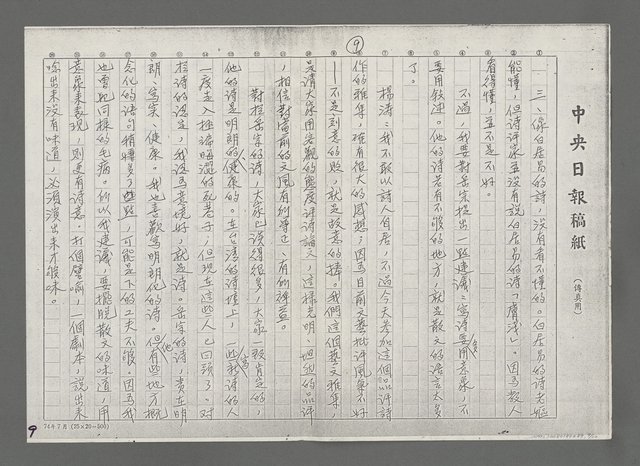 中央日報稿紙
(傳真用)
⑨
三、像白居易的詩，沒有看不懂的。白居易的詩老嫗
能懂，但詩評家並沒有說白居易的詩「膚淺」。因為教人
看得懂，並不是不好。
不過，我要對岳宗提出一點建議：寫詩要用意象，不
要用敘述。他的詩若有不夠的地方，就是散文的語言太多
了。
楊濤：我不敢以詩人自居，不過今天參加這個品評詩
作的雅集，確有很大的感想，因為目前文藝批評風氣不好
——不是刻意的貶，就是故意的捧。我們這個藝文雅集
是請大家用客觀的態度評詩論文，這樣光明、坦白的品評
，相信對當前的文風有所導正、有所裨益。
對於岳宗的詩，大家已談得很多，大家一致肯定的，
他的詩是明朗的、健康的。在台灣的詩壇上，一些寫詩的人
一度走入推論晦澀的死巷子，但現在這些人已回頭了。對
於詩的認定，我認為意境好，就是詩。岳宗的詩，貴在明
朗、寫實、健康。我也喜歡寫明朗化的詩。但他有些地方概
念化的語句稍嫌多了些些，可能是下的工夫不夠。因為我
也曾犯同樣的毛病。所以我建議，要擺脫散文的味道，用
意象來表現，則更有詩意。打個譬喻，一個劇本，說出來
唸出來沒有味道，必須演出來才夠味。
74年7月(25×20=500)
9